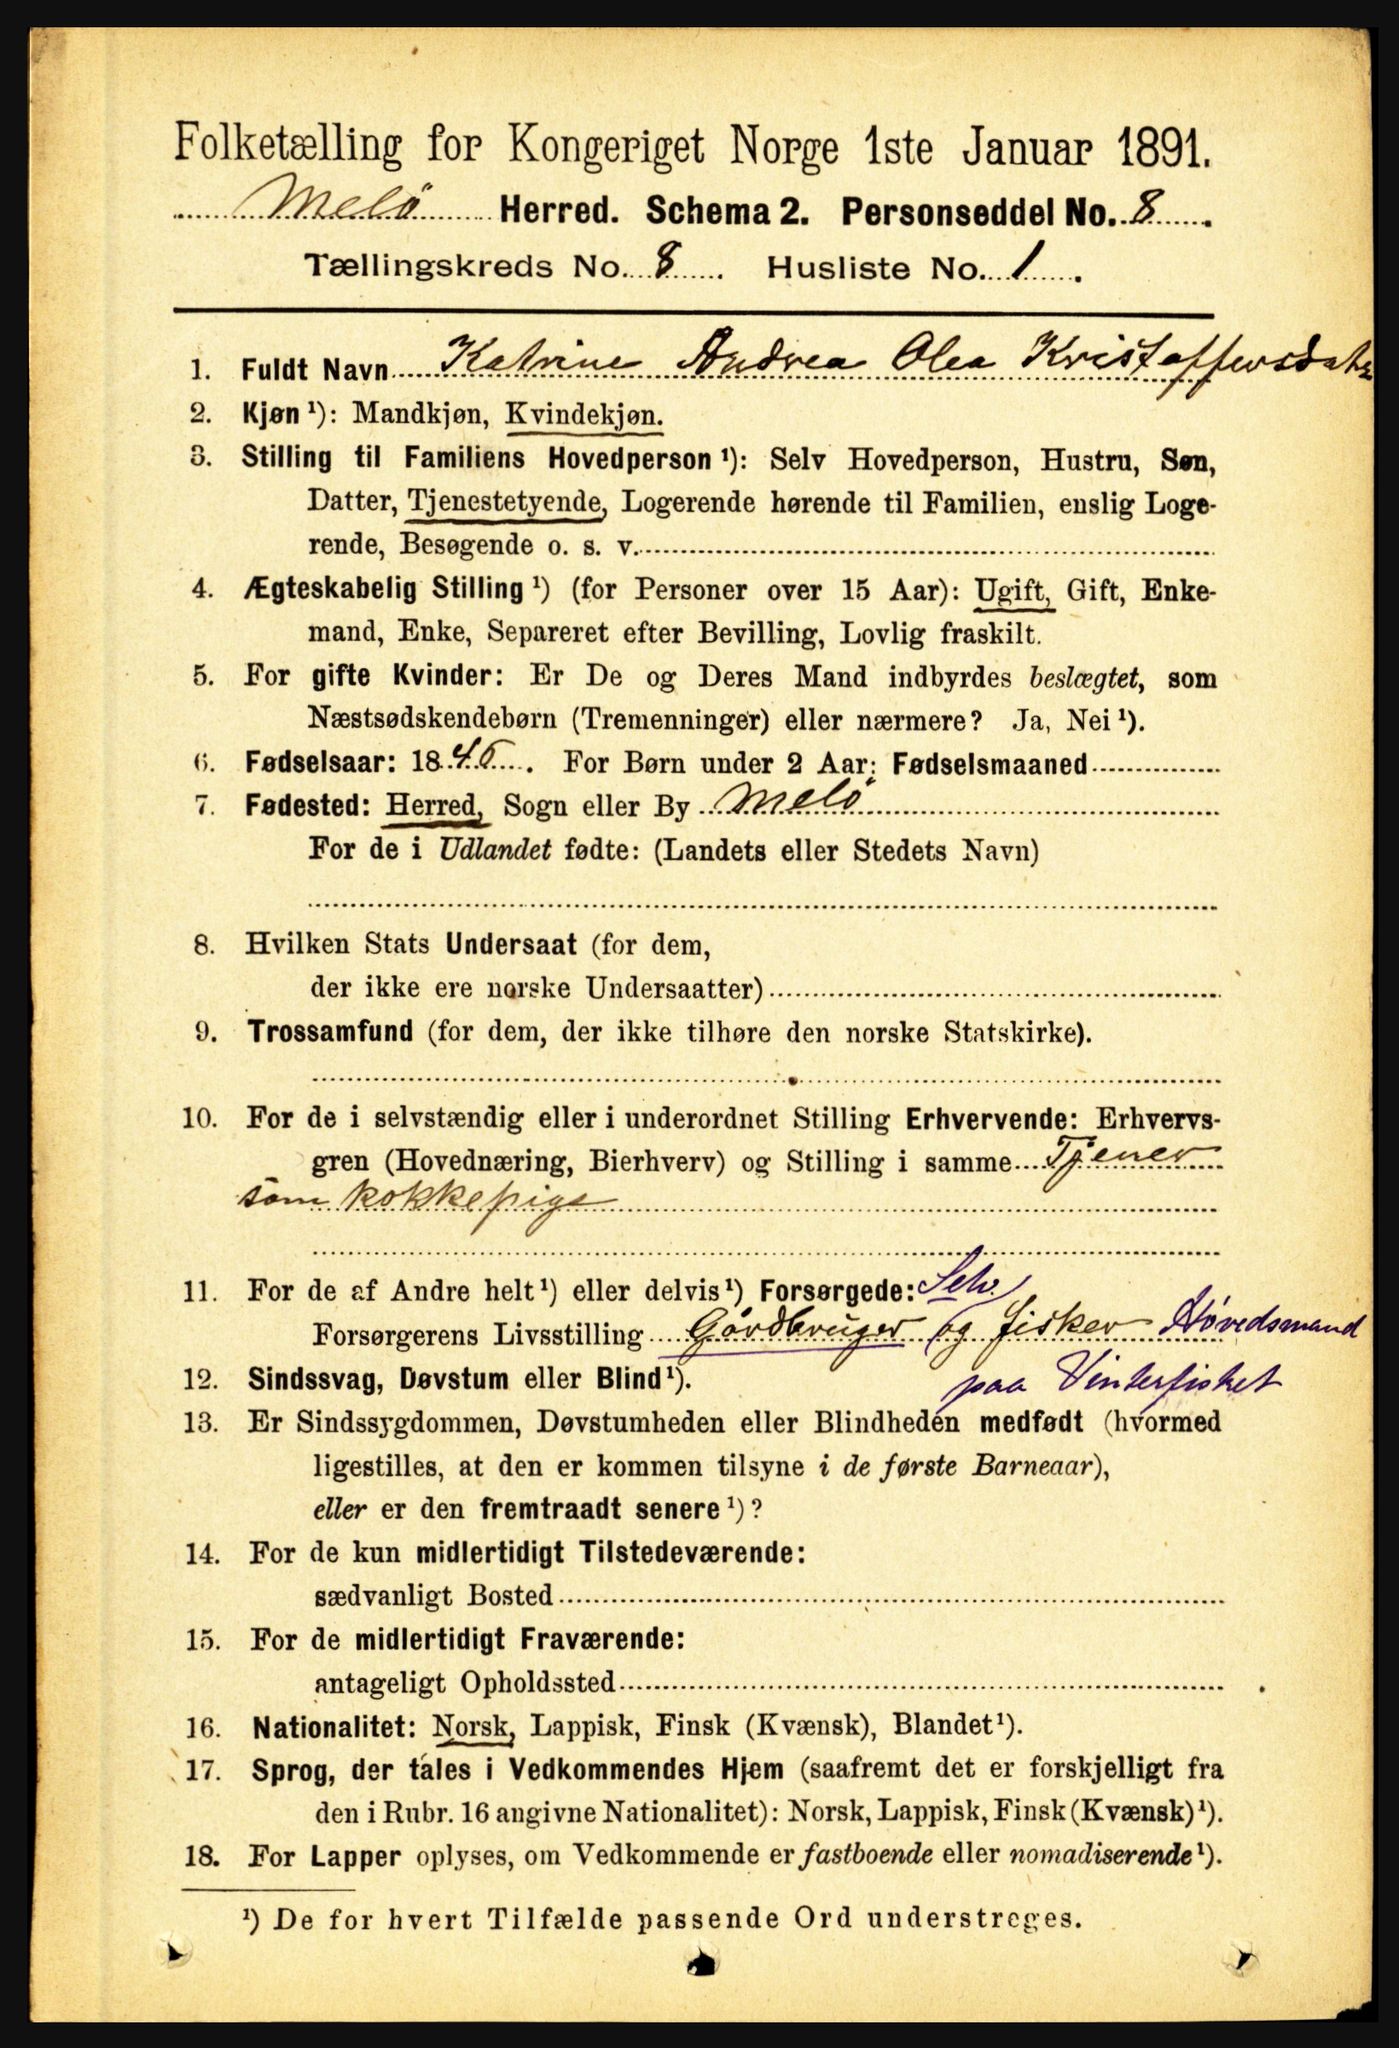 Folketælling for Kongeriget Norge 1ste Januar 1891.
Melö Herred. Schema 2. Personseddel No. 8.
Tællingskreds No. 8. Husliste No. 1.
1. Fuldt Navn Katrine Andrea Olea Kristoffersdatr
2. Kjøn ¹): Mandkjøn, Kvindekjøn.
3. Stilling til Familiens Hovedperson ¹): Selv Hovedperson, Hustru, Søn,
Datter, Tjenestetyende, Logerende hørende til Familien, enslig Loge-
rende, Besøgende o. s. v.
4. Ægteskabelig Stilling ¹) (for Personer over 15 Aar): Ugift, Gift, Enke-
mand, Enke, Separeret efter Bevilling, Lovlig fraskilt.
5. For gifte Kvinder: Er De og Deres Mand indbyrdes beslægtet, som
Næstsødskendebørn (Tremenninger) eller nærmere? Ja, Nei ¹).
6. Fødselsaar: 18 . For Børn under 2 Aar: Fødselsmaaned
7. Fødested: Herred, Sogn eller By Melö
For de i Udlandet fødte: (Landets eller Stedets Navn)
8. Hvilken Stats Undersaat (for dem,
der ikke ere norske Undersaatter)
9. Trossamfund (for dem, der ikke tilhøre den norske Statskirke).
10. For de i selvstændig eller i underordnet Stilling Erhvervende: Erhvervs-
gren (Hovednæring, Bierhverv) og Stilling i samme Tjener
som kokkepige
11. For de af Andre helt ¹) eller delvis ¹) Forsørgede: Selv.
Forsørgerens Livsstilling Gårdbruger og fisker Hövedsmand
paa Vinterfisket
12. Sindssvag, Døvstum eller Blind ¹).
13. Er Sindssygdommen, Døvstumheden eller Blindheden medfødt (hvormed
ligestilles, at den er kommen tilsyne i de første Barneaar),
eller er den fremtraadt senere ¹)?
14. For de kun midlertidigt Tilstedeværende:
sædvanligt Bosted
15. For de midlertidigt Fraværende:
antageligt Opholdssted
16. Nationalitet: Norsk, Lappisk, Finsk (Kvænsk), Blandet ¹).
17. Sprog, der tales i Vedkommendes Hjem (saafremt det er forskjelligt fra
den i Rubr. 16 angivne Nationalitet): Norsk, Lappisk, Finsk (Kvænsk) ¹).
18. For Lapper oplyses, om Vedkommende er fastboende eller nomadiserende ¹).
¹) De for hvert Tilfælde passende Ord understreges.